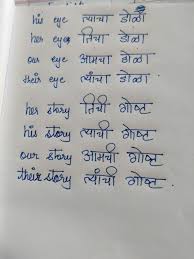 his eye त्याचा डोळा
her eye तिचा डोळा
our eye आमचा डोळा
their eye त्यांचा डोळा.
her story तिची गोष्ट
his story त्याची गोष्ट
our story आमची गोष्ट
their story त्यांची गोष्ट.